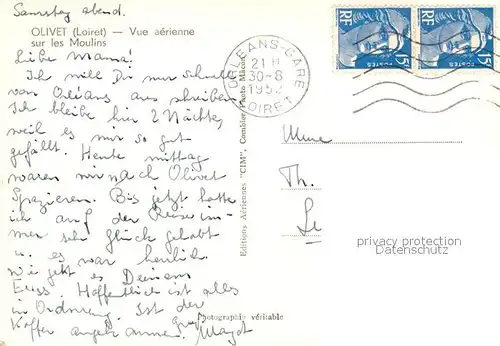 Samstag abend.
OLIVET (Loiret) — Vue aérienne
sur les Moulins
Liebe Mama!
Ich will Dir nur schnell
von Orléans aus schreiben.
Ich bleibe hier 2 Nächte,
weil es mir so gut
gefällt. Heute mittag
waren wir nach Olivet
spazieren. Bis jetzt hatte
ich auf der Reise im-
mer sehr Glück gehabt
u. es war herrlich.
Wie geht es Deinem
Fuss. Hoffentlich ist alles
in Ordnung. Ist der
Koffer angekommen.
Gruß
Margot
Editions Aériennes "CIM", Combier
Photo Mâcon
Photographie véritable
ORLEANS-GARE
21 H
30-8
1952
LOIRET
RF
15F
POSTES
RF
15F
POSTES
Mme
Th.
Le
privacy protection
Datenschutz